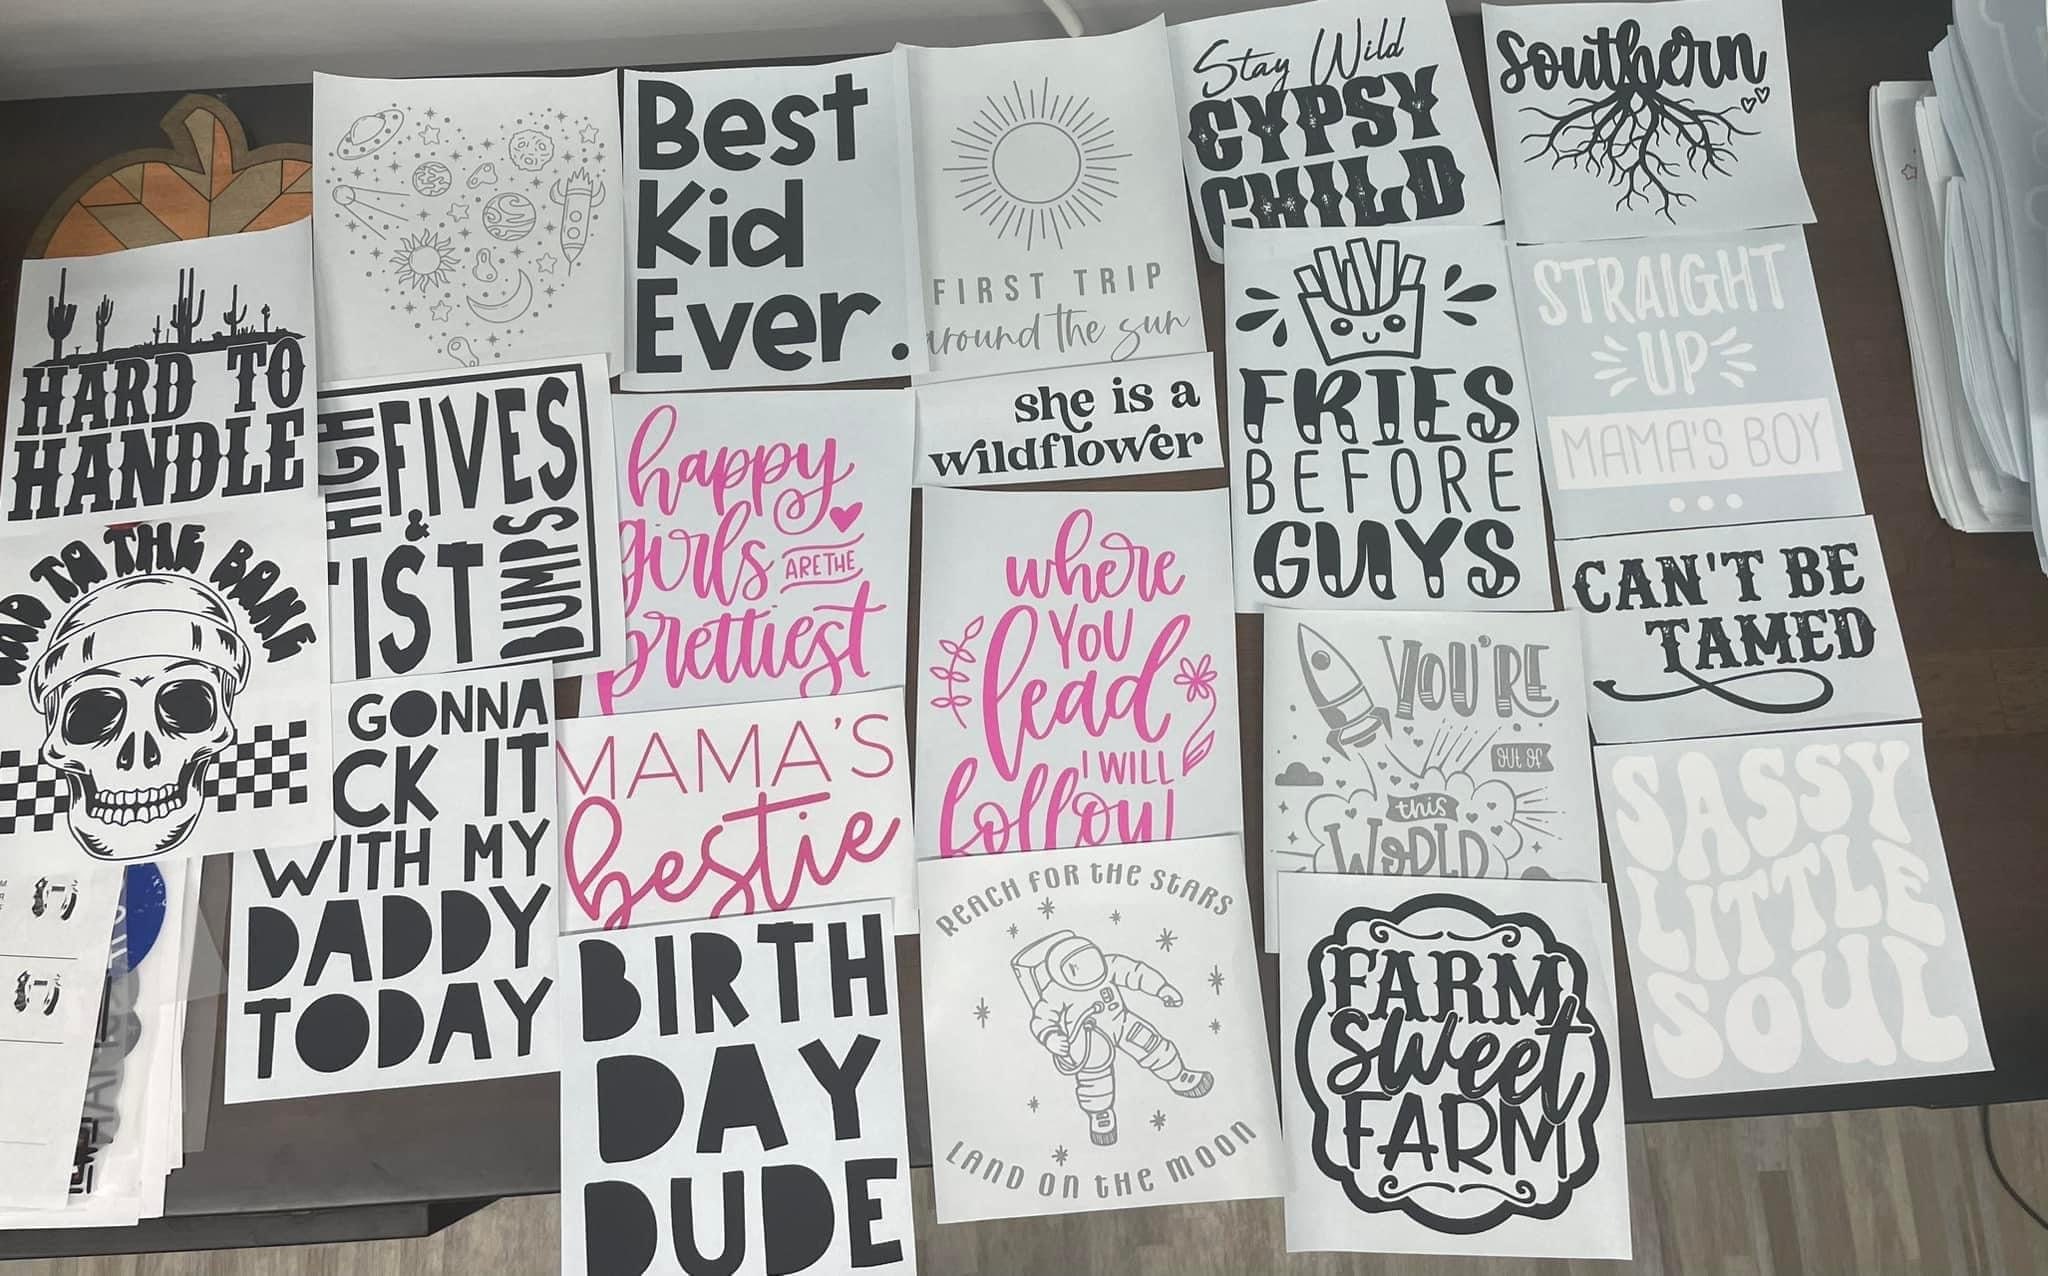 Best
Kid
Ever.
FIRST TRIP
around the sun
Stay Wild
GYPSY
CHILD
Southern
HARD TO
HANDLE
HIGH
FIVES
&
FIST
BUMPS
happy
girls
ARE THE
prettiest
she is a
wildflower
FRIES
BEFORE
GUYS
STRAIGHT
UP
MAMA'S BOY
...
TO THE BONE
GONNA
CK IT
WITH MY
DADDY
TODAY
MAMA'S
bestie
where
YOU
lead
I WILL
follow
YOU'RE
OUT OF
this
WORLD
CAN'T BE
TAMED
SASSY
LITTLE
SOUL
BIRTH
DAY
DUDE
REACH FOR THE STARS
LAND ON THE MOON
FARM
Sweet
FARM